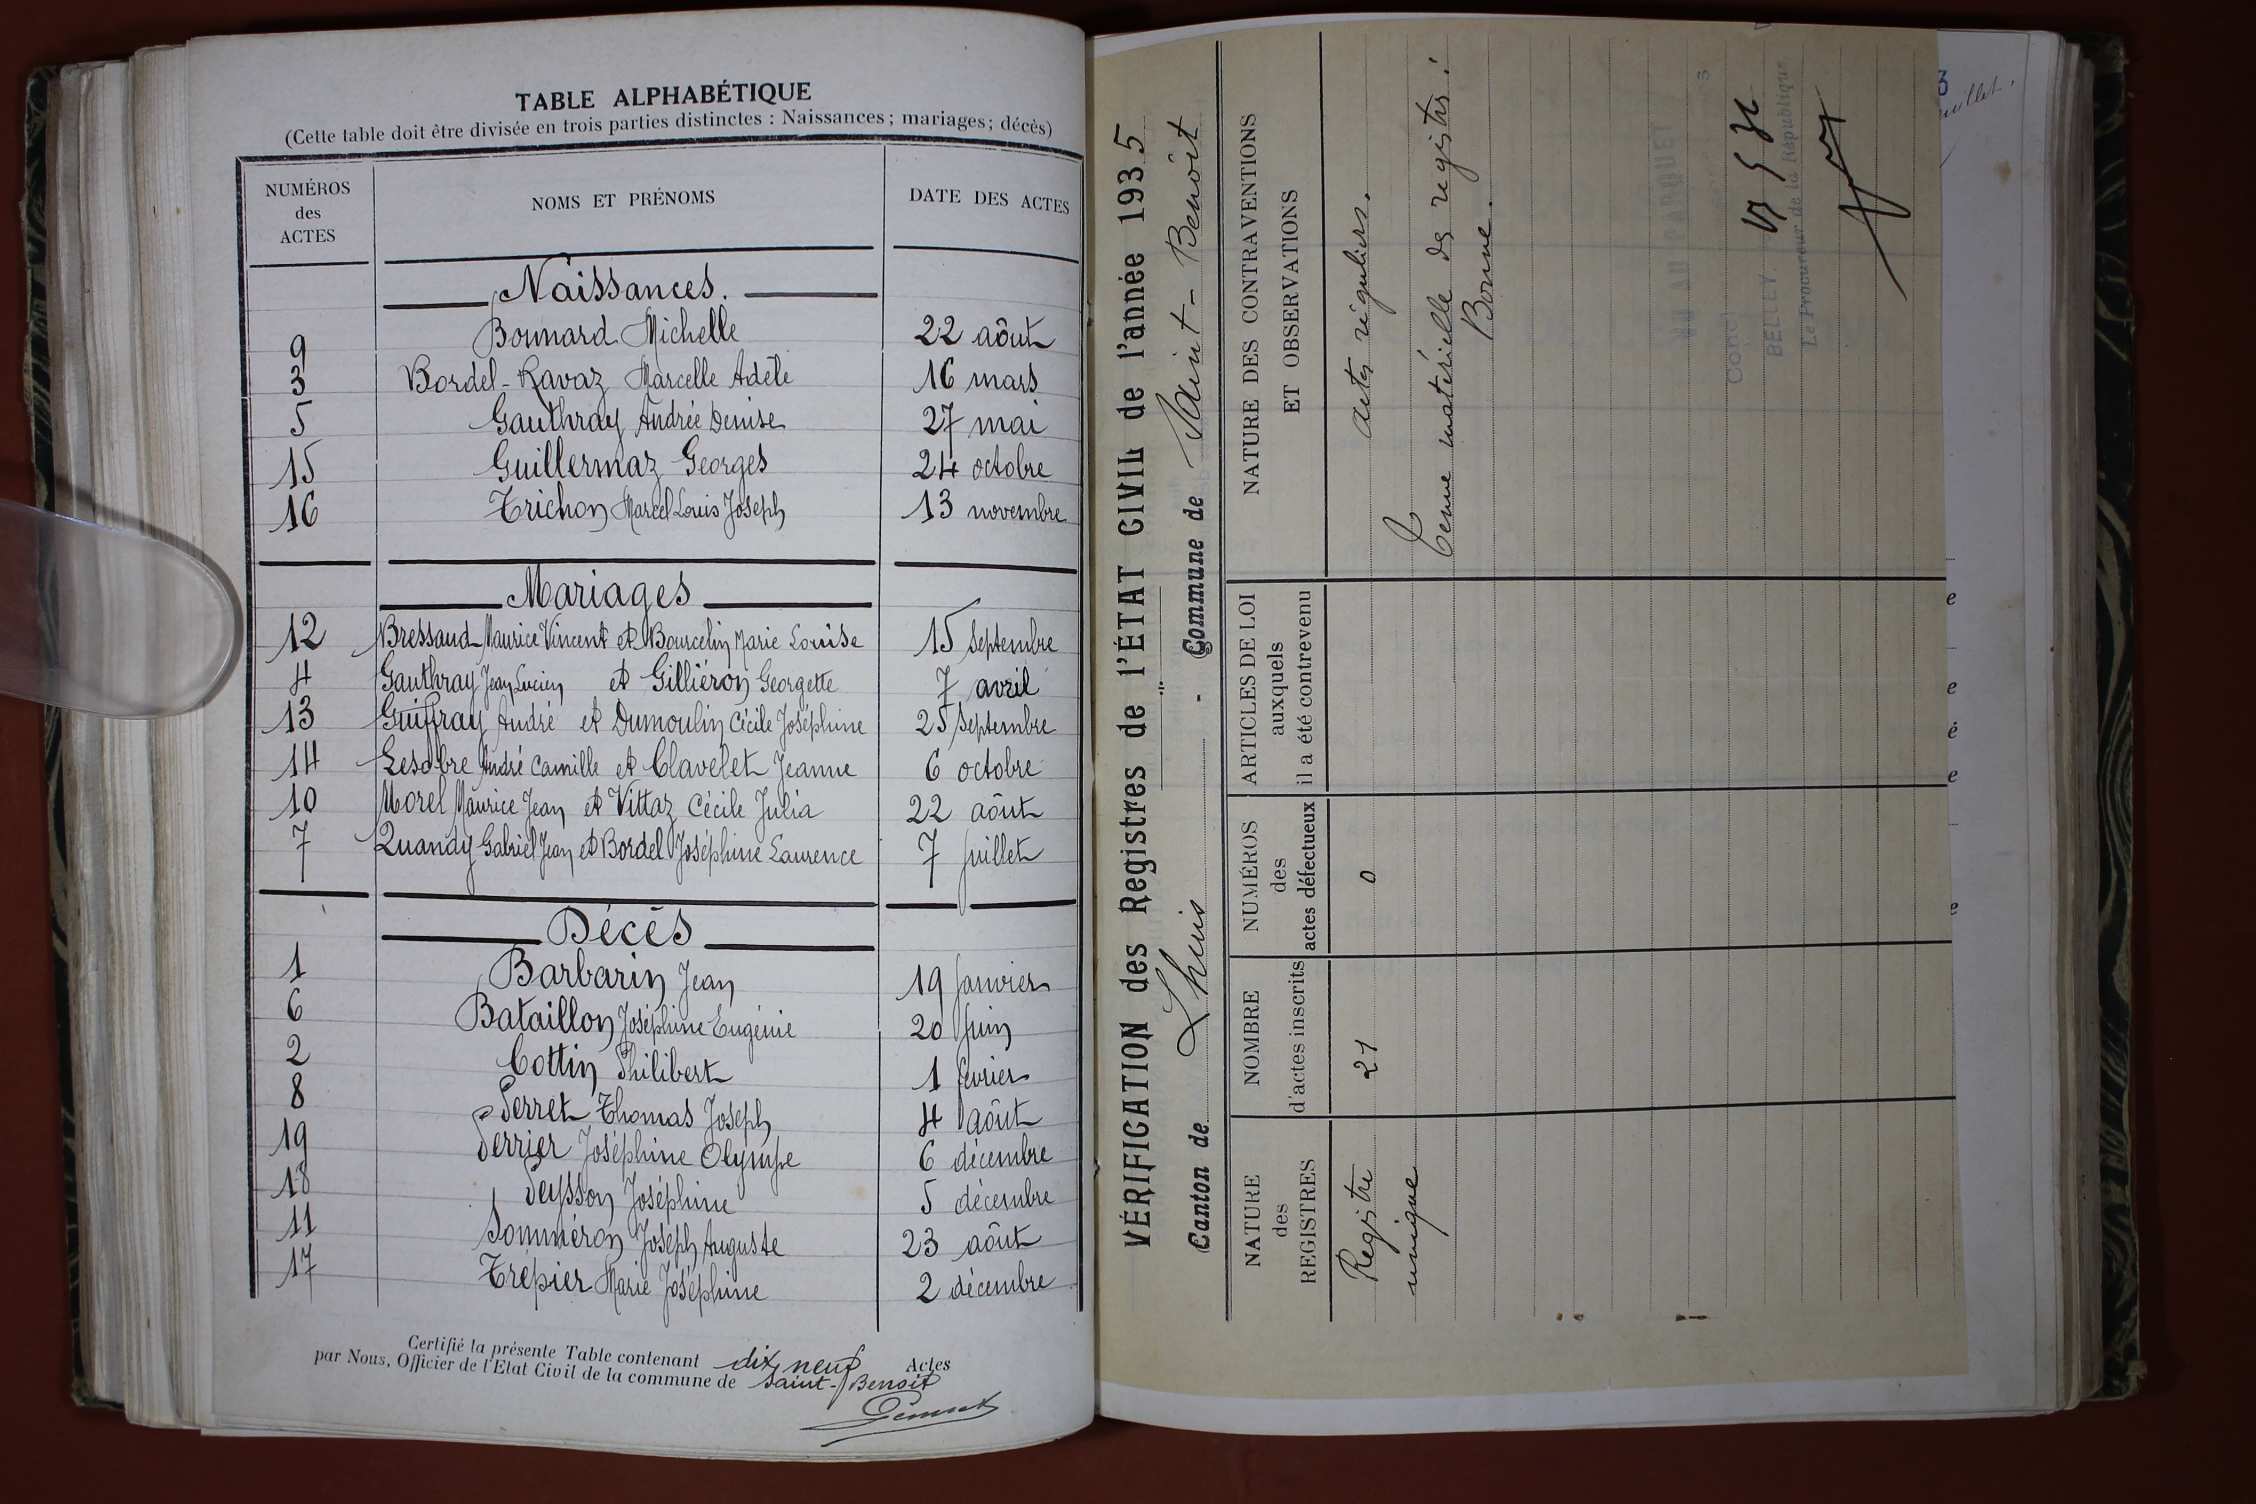 TABLE ALPHABÉTIQUE
(Cette table doit être divisée en trois parties distinctes : Naissances ; mariages ; décès)
NUMÉROS
des
ACTES
NOMS ET PRÉNOMS
DATE DES ACTES
Naissances.
9 Bonnard Michelle 22 aôut
3 Bordel-Ravaz Marcelle Adèle 16 mars
5 Gauthray Andrée Denise 27 mai
15 Guillermaz Georges 24 octobre
16 Trichon Marcel Louis Joseph 13 novembre
Mariages
12 Bressaud Maurice Vincent et Bourcelin Marie Louise 15 septembre
4 Gauthray Jean Lucien et Gilliéron Georgette 7 avril
13 Guiffray André et Dumoulin Cécile Joséphine 25 septembre
14 Lesobre André Camille et Clavelet Jeanne 6 octobre
10 Morel Maurice Jean et Vittaz Cécile Julia 22 aôut
7 Quandy Gabriel Jean et Bordel Joséphine Laurence 7 juillet
Décès
1 Barbarin Jean 19 janvier
6 Bataillon Joséphine Eugénie 20 juin
2 Cottin Philibert 1 février
8 Perret Thomas Joseph 4 aôut
19 Perrier Joséphine Olympe 6 décembre
18 Peysson Joséphine 5 décembre
11 Somméron Joseph Auguste 23 aôut
17 Trépier Marie Joséphine 2 décembre
Certifié la présente Table contenant dix neuf Actes
par Nous, Officier de l'Etat Civil de la commune de Saint-Benoit
VÉRIFICATION des Registres de l'ÉTAT CIVIL de l'année 1935
Canton de Lhuis - Commune de Saint-Benoit
NATURE
des
REGISTRES
NOMBRE
d'actes inscrits
NUMÉROS
des
actes défectueux
ARTICLES DE LOI
auxquels
il a été contrevenu
NATURE DES CONTRAVENTIONS
ET OBSERVATIONS
Registre 21 0 actes réguliers.
unique
Tenue matérielle des registres :
Bonne.
BELLEY
Le Procureur de la République
3